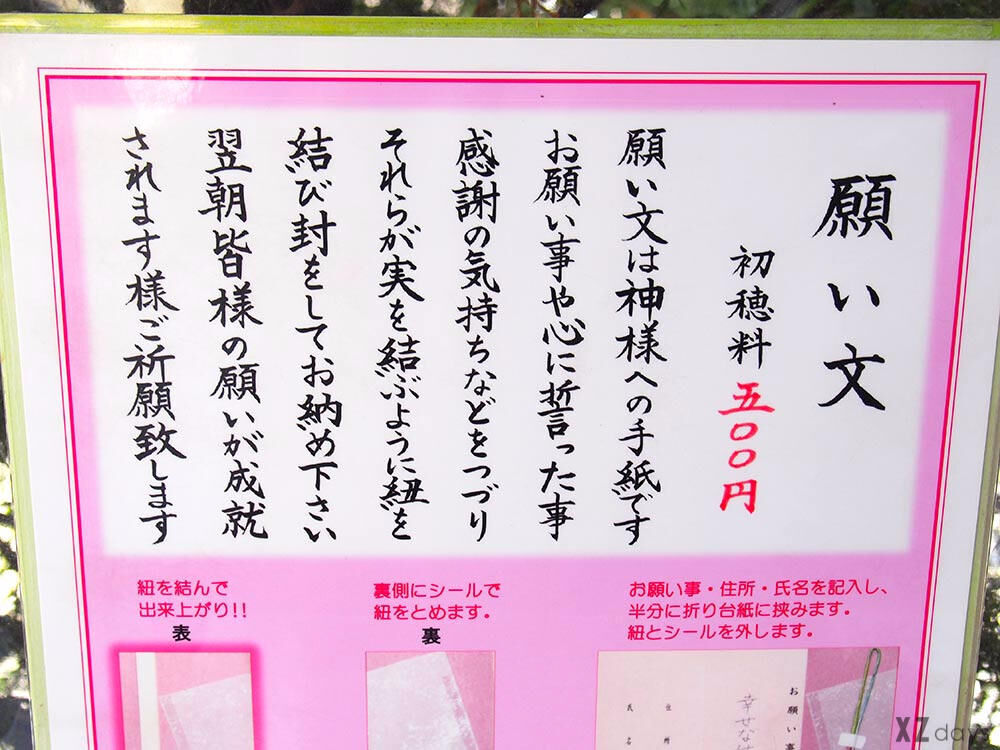 願い文
初穂料 五〇〇円
願い文は神様への手紙です
お願い事や心に誓った事
感謝の気持ちなどをつづり
それらが実を結ぶように紐を
結び封をしてお納め下さい
翌朝皆様の願いが成就
されます様ご祈願致します
お願い事・住所・氏名を記入し、
半分に折り台紙に挟みます。
紐とシールを外します。
裏側にシールで
紐をとめます。
裏
紐を結んで
出来上がり!!
表
お願い事
幸せな
住所
氏名
XZ days